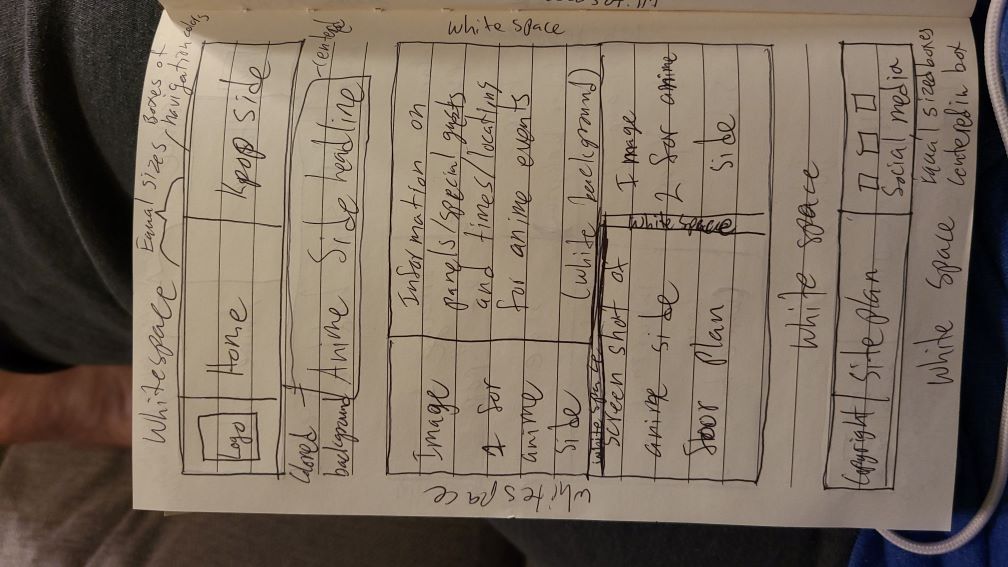 Whitespace
Equal sizes
Boxes of
navigation colors
Logo
Home
Kpop side
Colored
background
Anime Side headline
centered
whitespace
Image
1 for
anime
side
Information on
panels/special guests
and times/locations
for anime events
(white background)
white space
white space
Screen shot of
anime side
floor plan
white space
Image
2 for anime
side
White space
Copyright
Site plan
Social media
Equal sized boxes
centered in box
White space